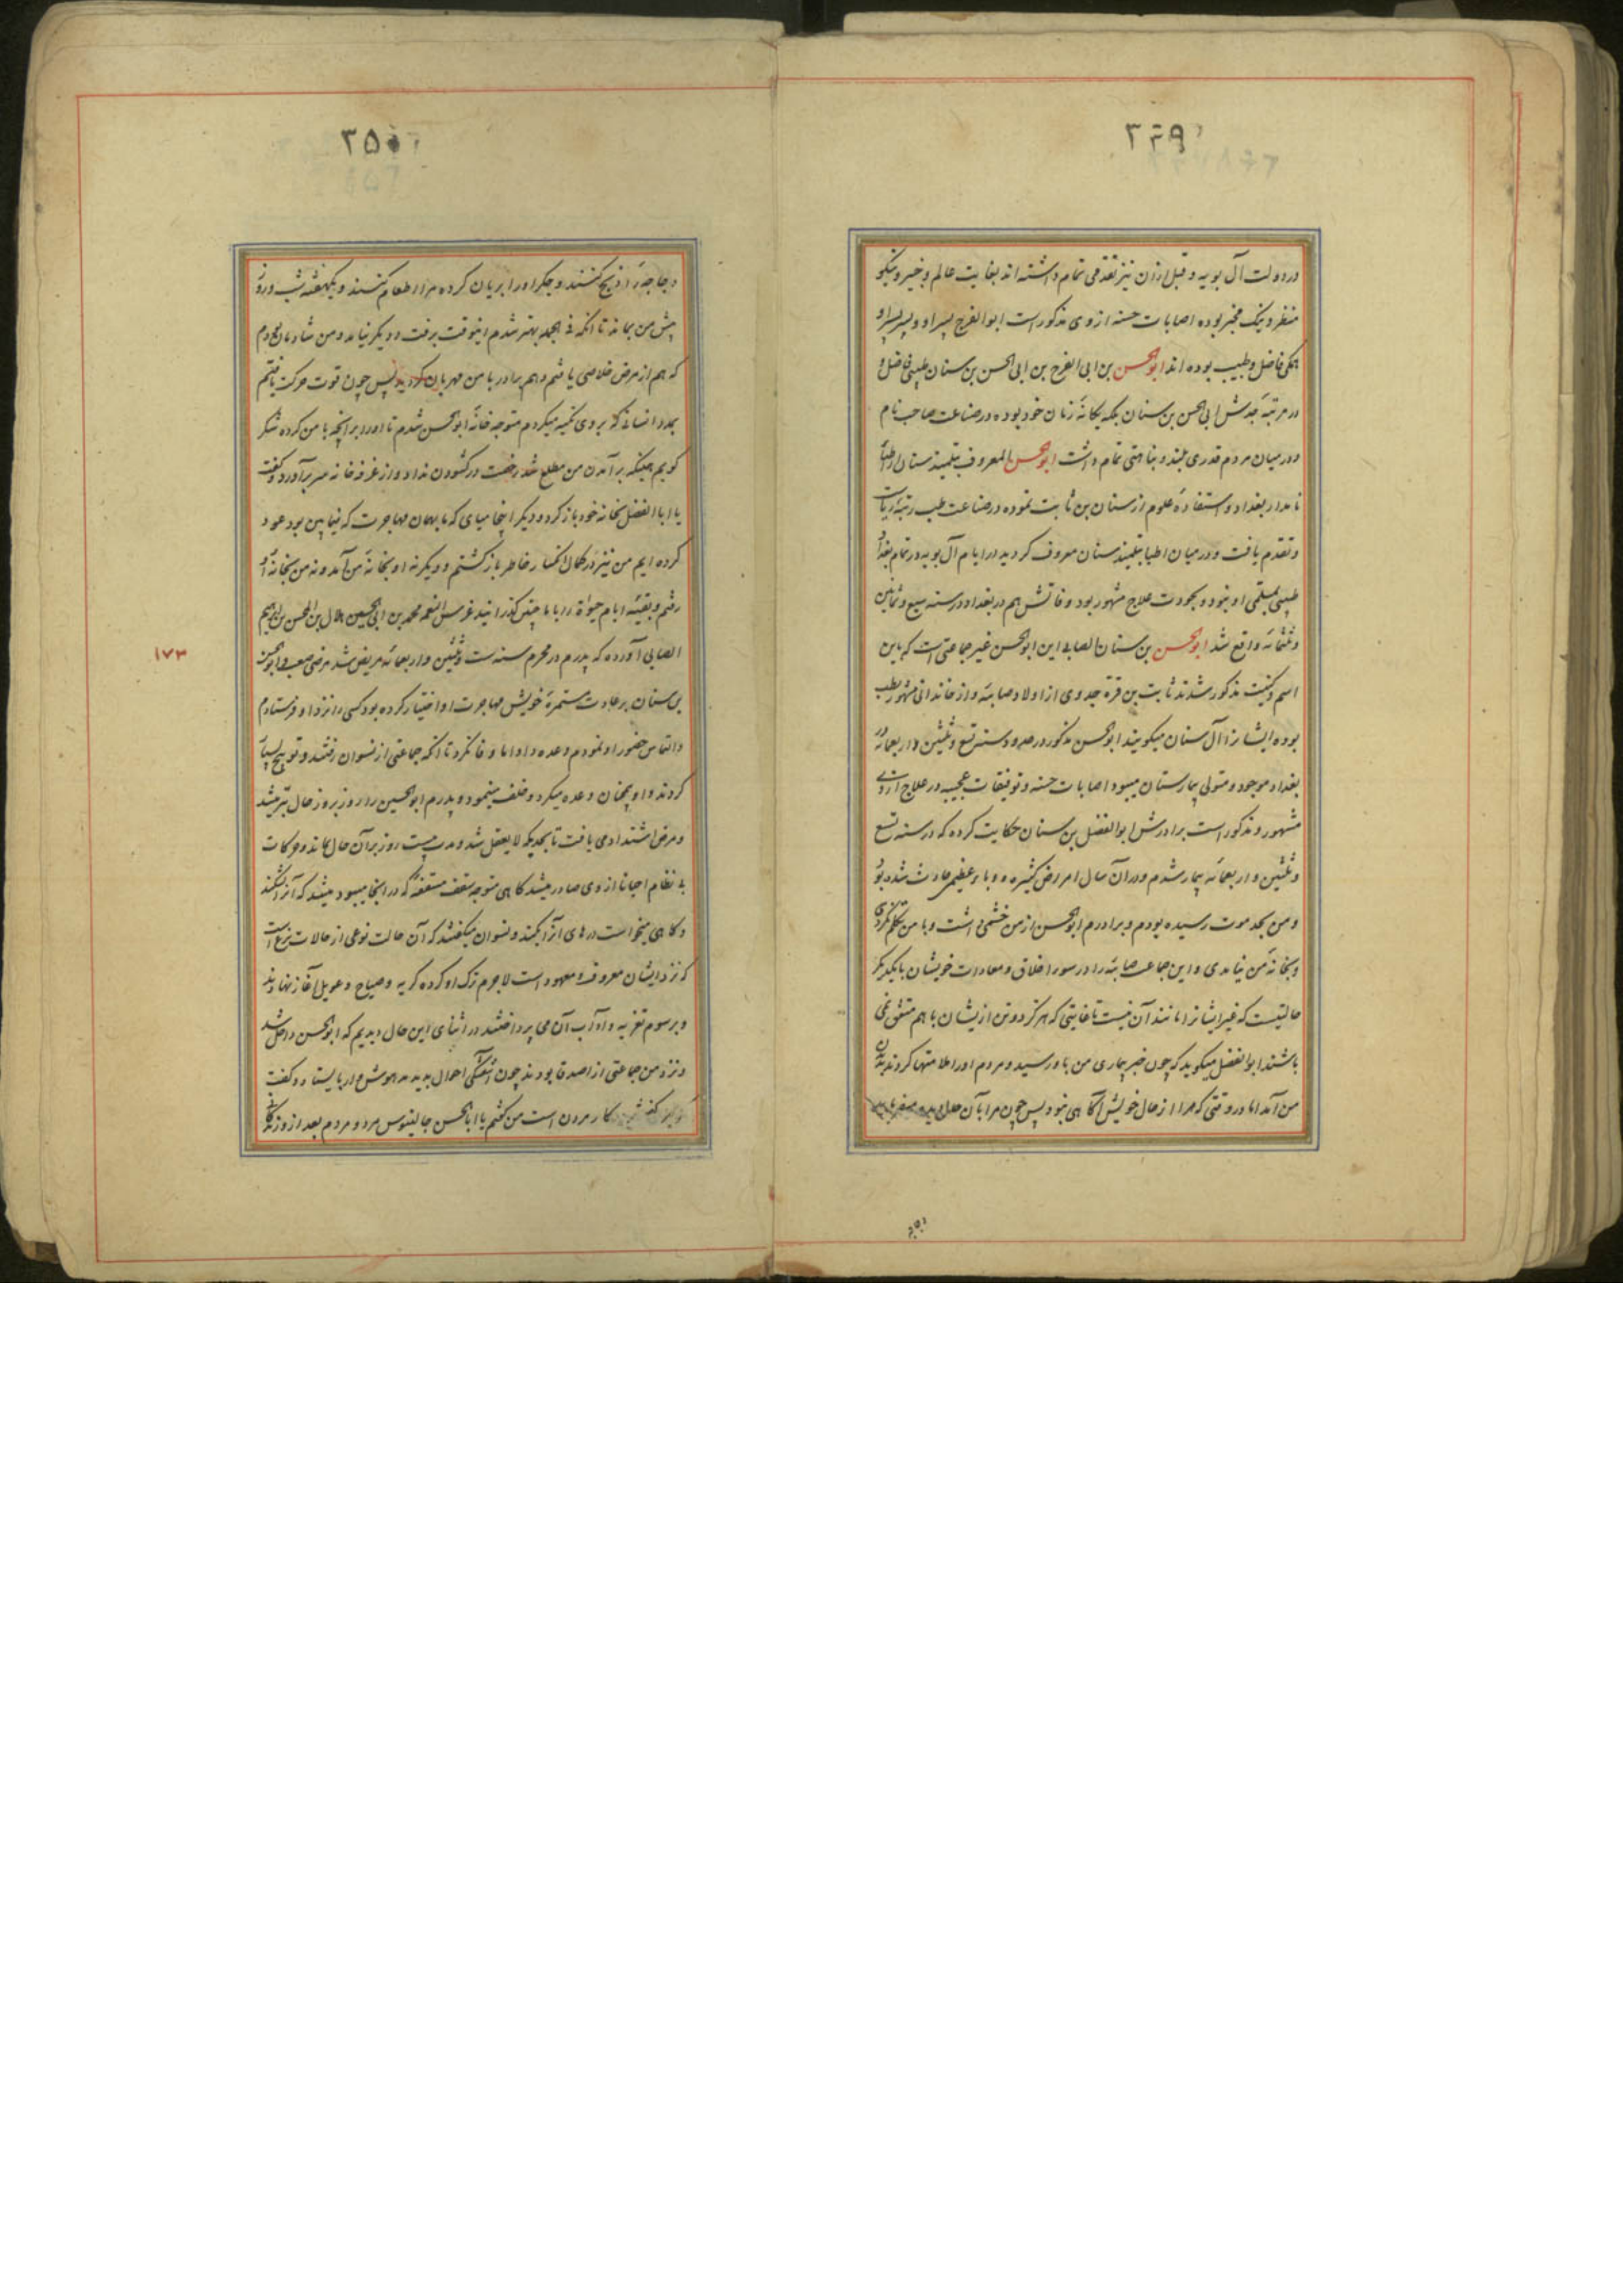 ۳۴۹
در دولت آل بویه و قبل ازان نیز تقدمی تمام داشته اند بغایت عالم و خبیر و نیکو
منظر و نیک مخبر بوده اصابات حسنه از وی مذکور است ابوالفرج پسر او و پسر پسر او
همگی فاضل و طبیب بوده اند ابوالحسن بن ابی الفرج بن ابی الحسن بن سنان طبیبی فاضل و
در مرتبهٔ جدش ابی الحسن بن سنان بلکه یگانهٔ زمان خود بوده در صناعت صاحب نام
و در میان مردم قدری بلند و نباهتی تمام داشت ابوالحسن المعروف بتلمیذ سنان از اطبآء
نامدار بغداد و استفادهٔ علوم از سنان بن ثابت نموده در صناعت طب رتبهٔ ریاست
و تقدم یافت و در میان اطبا بتلمیذ سنان معروف گردید در ایام آل بویه در تمام بغداد
طبیبی بمسلمی او نبود و بجودت علاج مشهور بود وفاتش هم در بغداد در سنه سبع و ثمانین
و ثلثمائه واقع شد ابوالحسن بن سنان الصابی این ابوالحسن غیر جماعتی است که باین
اسم و کنیت مذکور شدند ثابت بن قره جد وی از اولاد صابئه و از خاندانی مشهور بطب
بوده ایشانرا آل سنان میگویند ابوالحسن مذکور در حدود سنه تسع و ثلثین و اربعمائه در
بغداد موجود و متولی بیمارستان میبود اصابات حسنه و توفیقات عجیبه در علاج از وی
مشهور و مذکور است برادرش ابوالفضل بن سنان حکایت کرده که در سنه تسع
و ثلثین و اربعمائه بیمار شدم و در آن سال امراض کثیره و وباء عظیمی حادث شده بود
و من بحد موت رسیده بودم و برادرم ابوالحسن از من خشمی داشت و با من تکلم نکردی
و بخانهٔ من نیامدی و این جماعت صابئه را در سوء اخلاق و معادات خویشان با یکدیگر
حالتیست که غیر ایشانرا مانند آن نیست تا غایتی که هرگز دو تن از یشان با هم متفق نمی
باشند ابوالفضل میگوید که چون خبر بیماری من باو رسید و مردم او را ملامتها کردند بدیدن
من آمد اما در وقتی که مرا از حال خویش آگاهی نبود پس چون مرا بآن حال دید
۳۵۰
دجاجه را ذبح کنند و جگر او را بریان کرده مرا اطعام کنند و یکهفته شب و روز
پیش من بماند تا انکه فی الجمله بهتر شدم اینوقت برفت و دیگر نیامد و من شادمان بودم
که هم از مرض خلاصی یافتم و هم برادر با من مهربان گردید پس چون قوت حرکت یافتم
بمدد انسانی که بر وی تکیه میکردم متوجه خانهٔ ابوالحسن شدم تا او را بر انچه با من کرده شکر
گویم همینکه بر آمدن من مطلع شد رخصت در گشودن نداد و از غرفه خانه سر بر آورد و گفت
یا ابا الفضل بخانه خود باز گرد و دیگر اینجا میای که ما بهمان مهاجرت که فیمابین بود عود
کرده ایم من نیز در کمال انکسار خاطر باز گشتم و دیگر نه او بخانهٔ من آمد و نه من بخانهٔ او
رفتم و بقیهٔ ایام حیوة را با ما چنین گذرانید غرس النعمه محمد بن ابی الحسین هلال بن المحسن بن ابراهیم
الصابی آورده که پدرم در محرم سنه ست و ثلثین و اربعمائه مریض شد مرضی صعب و ابوالحسن
بن سنان بر عادت مستمرهٔ خویش مهاجرت او اختیار کرده بود کسی را نزد او فرستادم
و التماس حضور او نمودم وعده داد اما وفا نکرد تا انکه جماعتی از نسوان رفتند و توبیخ بسیار
کردند و او همچنان وعده میکرد و خلف مینمود و پدرم ابوالحسین را روز بروز حال بتر میشد
و مرض اشتداد می یافت تا بحدیکه لا یعقل شد و مدت بیست روز بر آن حال بماند و حرکات
بی نظام احیانا از وی صادر میشد گاهی متوجه سقف مسقفه که در انجا میبود میشد که آنرا بشکند
و گاهی میخواست درهای آنرا بکند و نسوان میگفتند که آن حالت نوعی از حالات نزع است
که نزد ایشان معروف و معهود است لاجرم ترک او کرده گریه و صیاح و عویل آغاز نهادند
و برسوم تعزیه و آداب آن می پرداختند در اثنای این حال دیدیم که ابوالحسن داخل شد
و نزد من جماعتی از اصدقا بودند چون آشفتگی احوال بدید مدهوش وار بایستاد و گفت
کار مردن است من گفتم یا ابا الحسن جالینوس مرد و مردم بعد از و زندگانی
۱۷۳